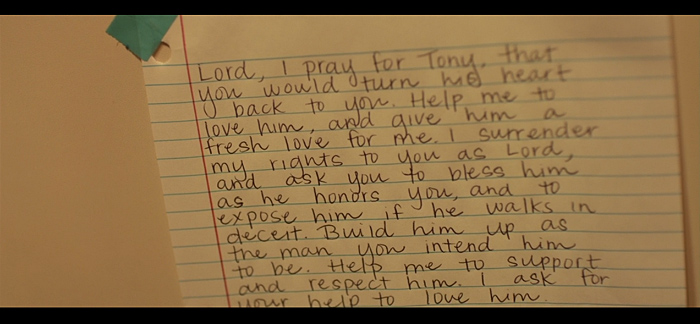 Lord, I pray for Tony, that
you would turn his heart
back to you. Help me to
love him, and give him a
fresh love for me. I surrender
my rights to you as Lord,
and ask you to bless him
as he honors you, and to
expose him if he walks in
deceit. Build him up as
the man you intend him
to be. Help me to support
and respect him. I ask for
your help to love him.